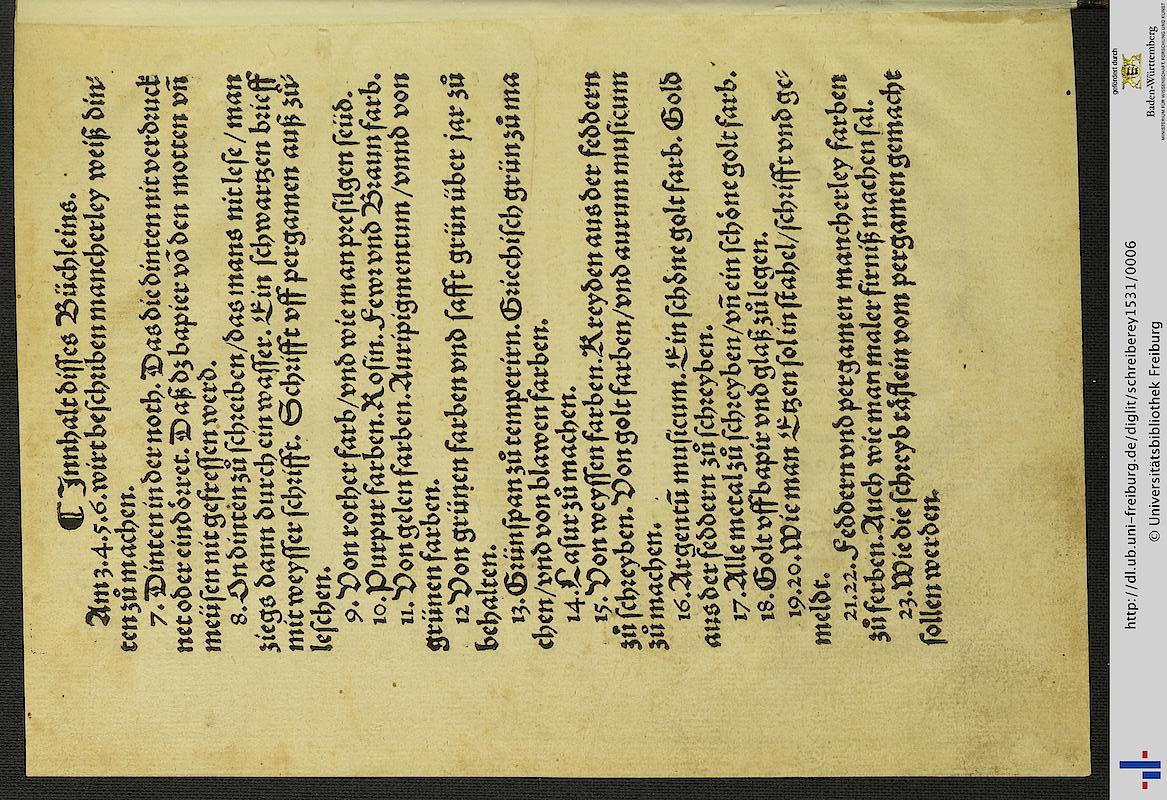 ¶ Innhalt disses Büchleins.
Am 3.4.5.6. wirt beschriben mancherley weiß din⸗
ten zů machen.
7. Dinten in der noth. Das die dinten nit verdruck
net oder eindörret. Daß dz bapier võ den motten vñ
meüsen nit gefressen werd.
8. In dinten zů schreiben/das mans nit lese/man
ziegs dann durch ein wasser. Ein schwartzen brieff
mit weysser schrifft. Schrifft vff pergamen auß zů⸗
leschen.
9. Von rother farb/vnd wie man presilgen seüd.
10. Purpur farben. Rosin. Fewr vnd Braun farb.
11. Von gelen farben. Auripigmentum/vnnd von
grünen farben.
12 Von grünen farben vnd safft grün über jar zů
behalten.
13. Grünspan zů temperirn. Griechisch grün zů ma
chen/vnd von blawen farben.
14. Lasur zů machen.
15. Von weyssen farben. Kreyden aus der feddern
zů schreyben. Von golt farben/vnd aurum musicum
zů machen.
16. Argentũ musicum. Ein schöne golt farb. Gold
aus der feddern zů schreyben.
17. Alle metal zů schreyben/vñ ein schöne golt farb.
18. Golt vff bapir vnd glaß zů legen.
19.20. Wie man Etzen sol in stahel/schifft vnd ge⸗
meldt.
21.22. Feddern vnd pergamen mancherley farben
zů ferben. Auch wie man maler firniß machen sal.
23. Wie die schreyb täflein vom pergamen gemacht
sollen werden.
http://dl.ub.uni-freiburg.de/diglit/schreiberey1531/0006
© Universitätsbibliothek Freiburg
gefördert durch
Baden-Württemberg
MINISTERIUM FÜR WISSENSCHAFT, FORSCHUNG UND KUNST